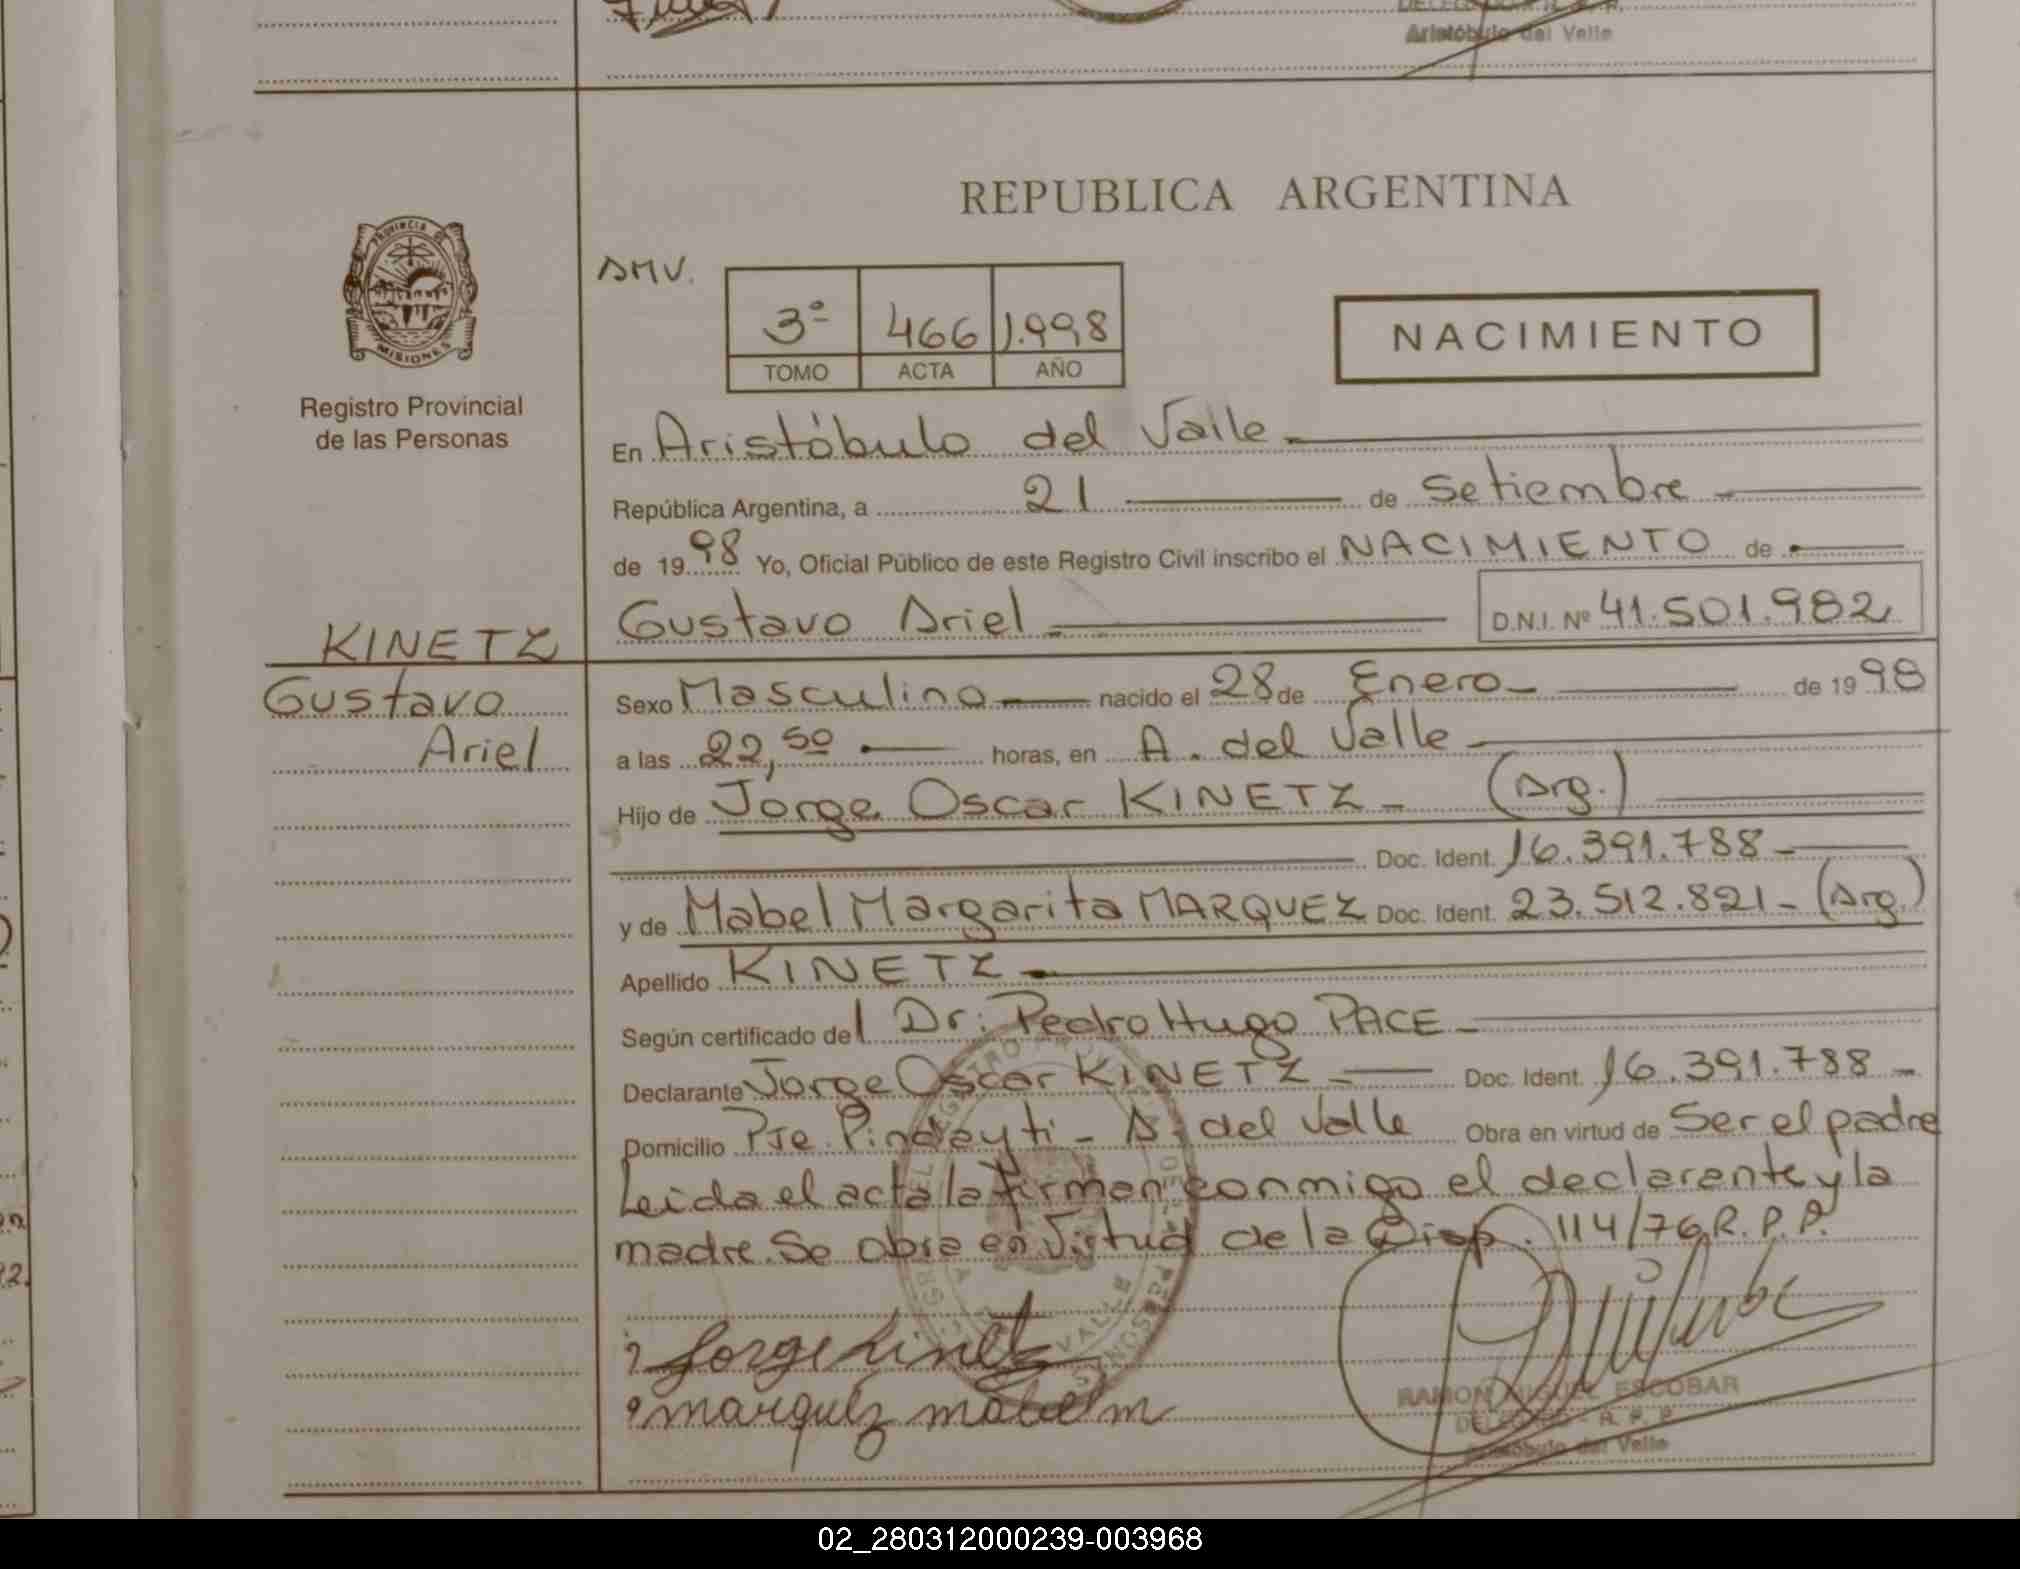 Aristóbulo del Valle
REPUBLICA ARGENTINA
PROVINCIA DE
MISIONES
Registro Provincial
de las Personas
AMV.
3º 466 1.998
TOMO ACTA AÑO
NACIMIENTO
En Aristóbulo del Valle
República Argentina, a 21 de Setiembre
de 1998 Yo, Oficial Público de este Registro Civil inscribo el NACIMIENTO de
Gustavo Ariel D.N.I. Nº 41.501.982
KINETZ
Gustavo
Ariel
Sexo Masculino nacido el 28 de Enero de 1998
a las 22,50 horas, en A. del Valle
Hijo de Jorge Oscar KINETZ (Arg.)
Doc. Ident. 16.391.788
y de Mabel Margarita MARQUEZ Doc. Ident. 23.512.821 - (Arg.)
Apellido KINETZ
Según certificado del Dr. Pedro Hugo PACE
Declarante Jorge Oscar KINETZ Doc. Ident. 16.391.788
Domicilio Pje. Pindayti - A. del Valle Obra en virtud de Ser el padre
Leida el acta la firman conmigo el declarante y la
madre. Se obra en virtud de la Disp. 114/76 R.P.P.
Jorge Kinetz
marquez mabel m
RAMON MIGUEL ESCOBAR
DELEGADO - R. P. P.
Aristóbulo del Valle
02_280312000239-003968